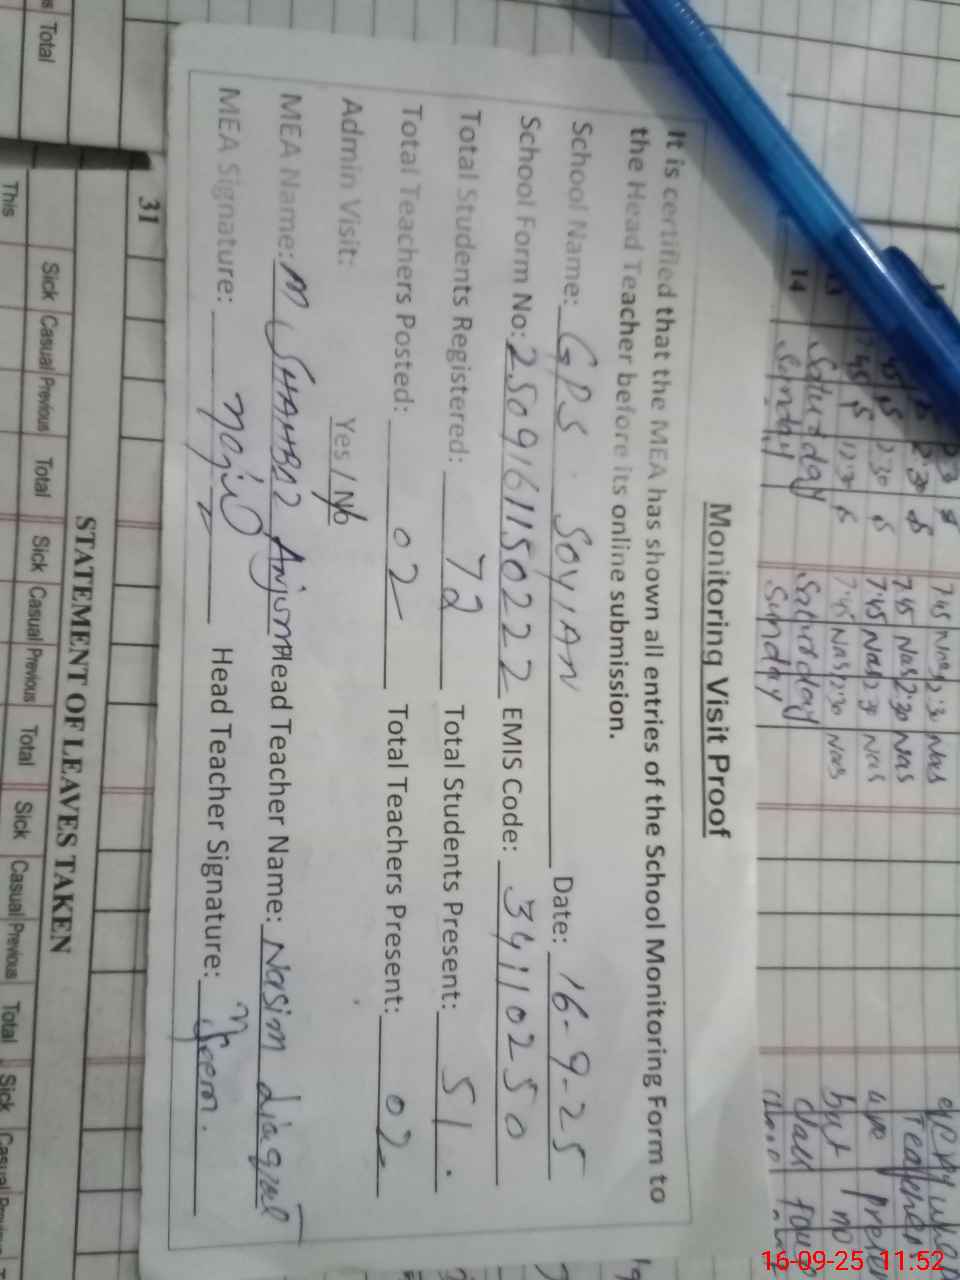 Monitoring Visit Proof
It is certified that the MEA has shown all entries of the School Monitoring Form to
the Head Teacher before its online submission.
School Name: GPS SOYIAN Date: 16-9-25
School Form No: 2509161150222 EMIS Code: 34110250
Total Students Registered: 72 Total Students Present: 51
Total Teachers Posted: 02 Total Teachers Present: 02
Admin Visit: Yes / No
MEA Name: M SHAHBAZ Anjum Head Teacher Name: Nasim Liaqat
MEA Signature: Head Teacher Signature:
14 Sunday Sunday
Saturday Saturday
7:45 Nas 12:30 Nas
7:45 Nas 12:30 Nas
7:45 Nas 12:30 Nas
Teacher
are present
but no
class four
31
STATEMENT OF LEAVES TAKEN
Sick Casual Previous Total Sick Casual Previous Total Sick Casual Previous Total Sick
This
Total
16-09-25 11:52